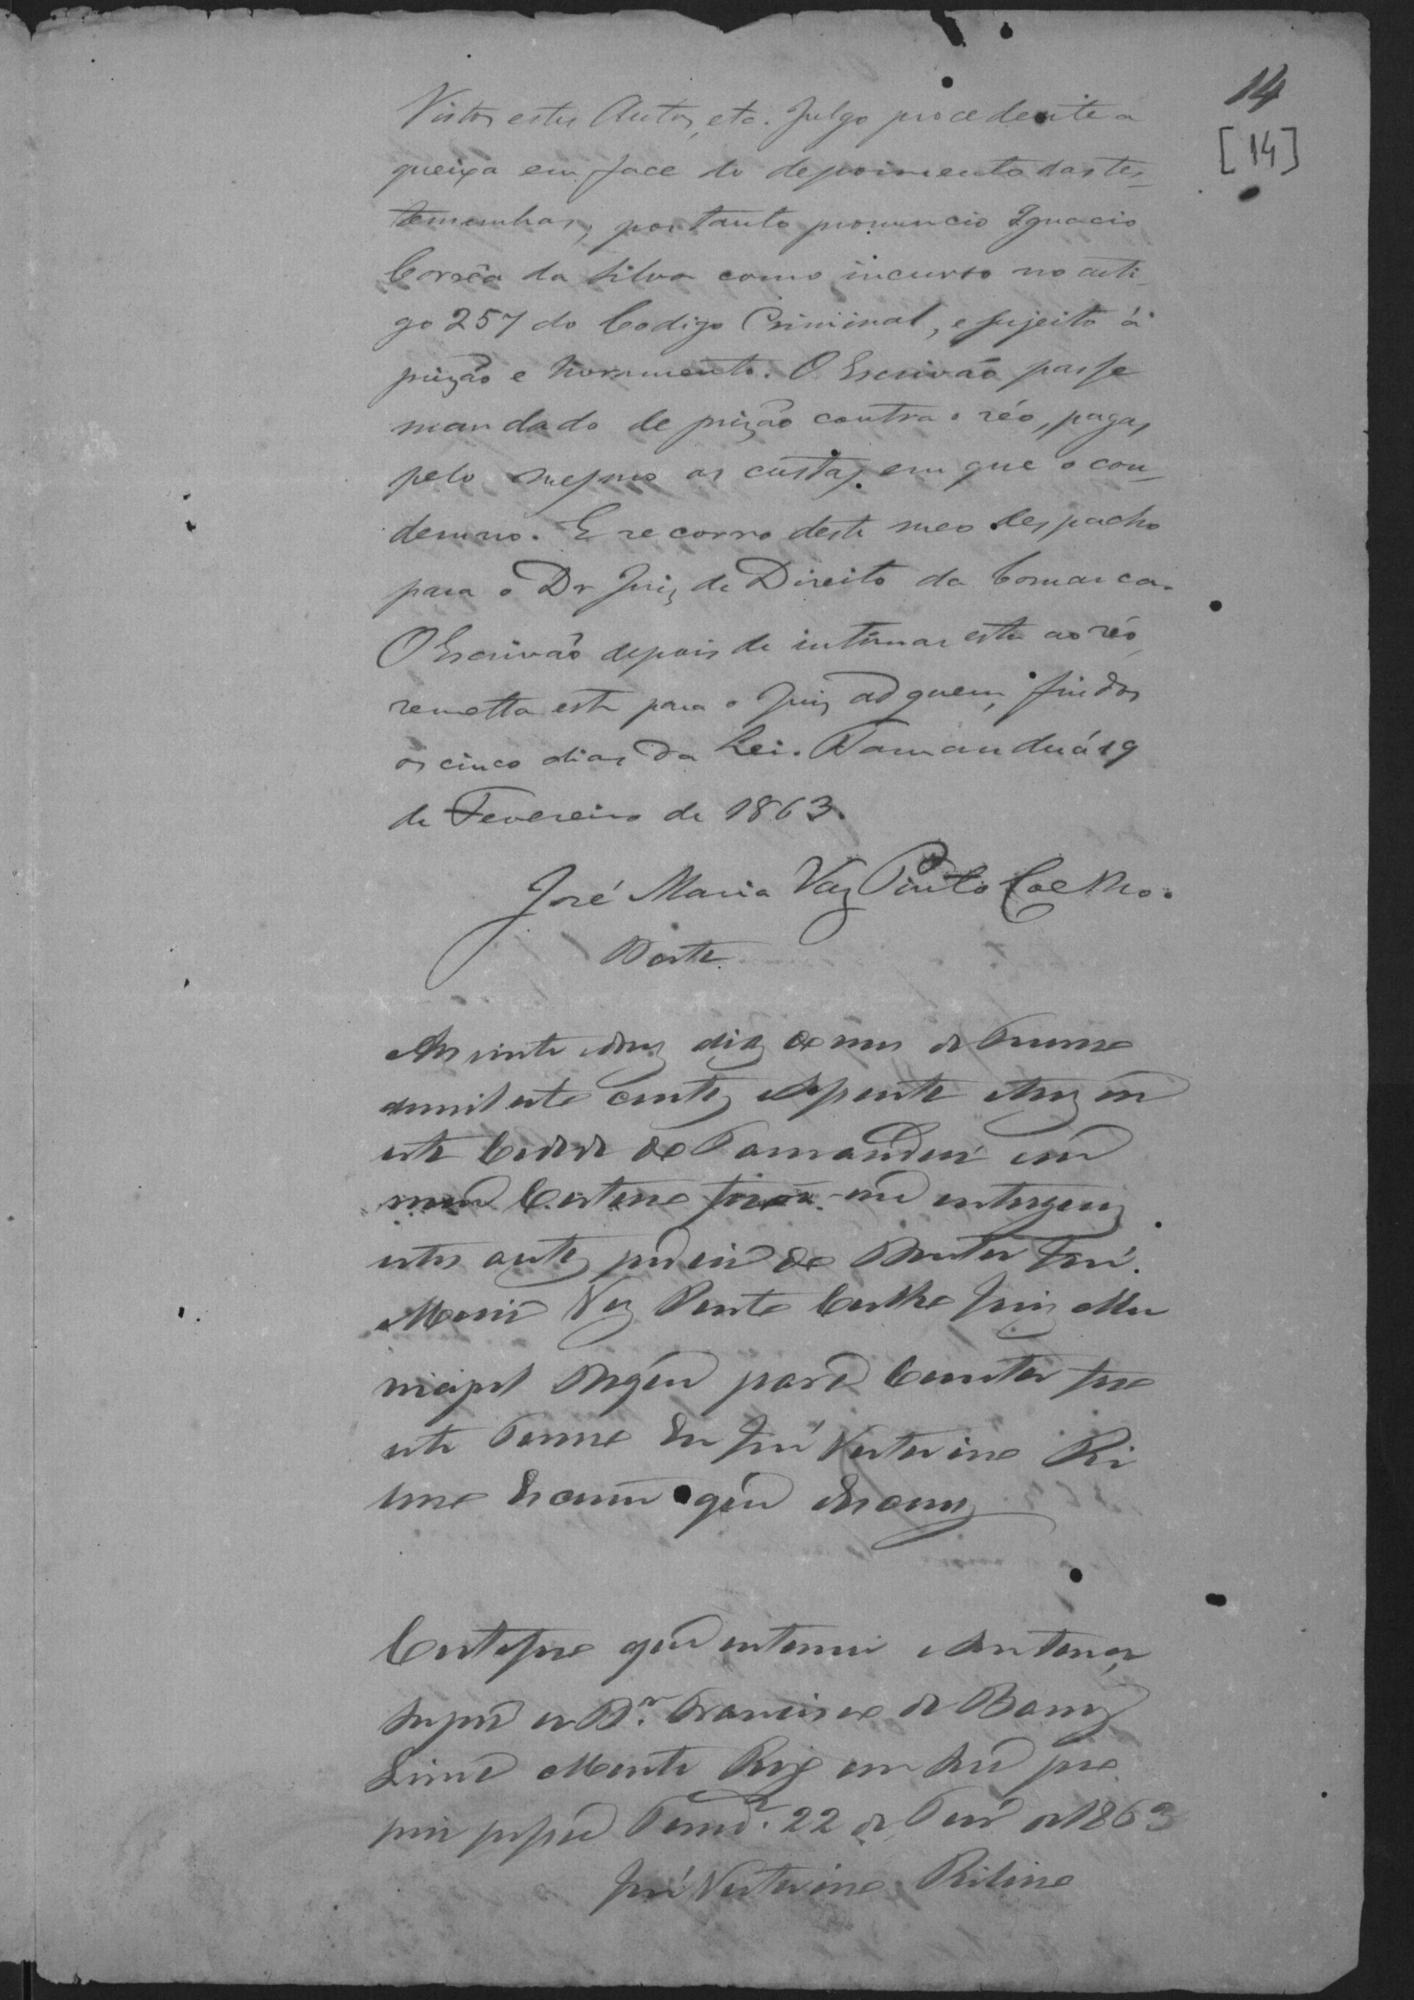 14
[14]
Vistos estes Autos, etc. Julgo procedente a
queixa em face do depoimento das tes-
temunhas, portanto pronuncio Ignacio
Corrêa da Silva como incurso no arti-
go 257 do Codigo Criminal, e sujeito á
prizão e livramento. O Escrivão passe
mandado de prizão contra o réo, pagas
pelo mesmo as custas, em que o con-
demno. E recorro deste meo despacho
para o Dr Juiz de Direito da Comarca.
O Escrivão depois de intimar este ao réo,
remetta este para o Juiz ad quem, findos
os cinco dias da Lei. Tamanduá 19
de Fevereiro de 1863.
José Maria Vaz Pinto Coelho.
Data
Aos vinte dous dias do mes de
de mil oito centos e sessenta e tres em
esta Cidade de Tamanduá em
meu Cartorio forão me entregues
estes autos por de Doutor José
Maria Vaz Pinto Coelho Juiz Mu
nicipal para Constar faço
este Termo Eu José Ri
Escrivão que escrevy
Certifico que intimei a Sentença
supra ao Dr. Francisco de Barros
Lima Monte Raso em sua pro
pria pessoa Tamd.ª 22 de de 1863
José